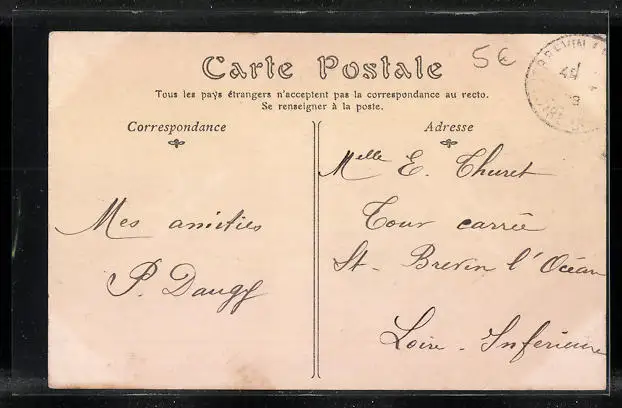 Carte Postale
5€
Tous les pays étrangers n'acceptent pas la correspondance au recto.
Se renseigner à la poste.
Correspondance
Mes amitiés
P. Daugy
Adresse
Melle E. Thuret
Tour carrée
St - Brevin l'Océan
Loire - Inférieure